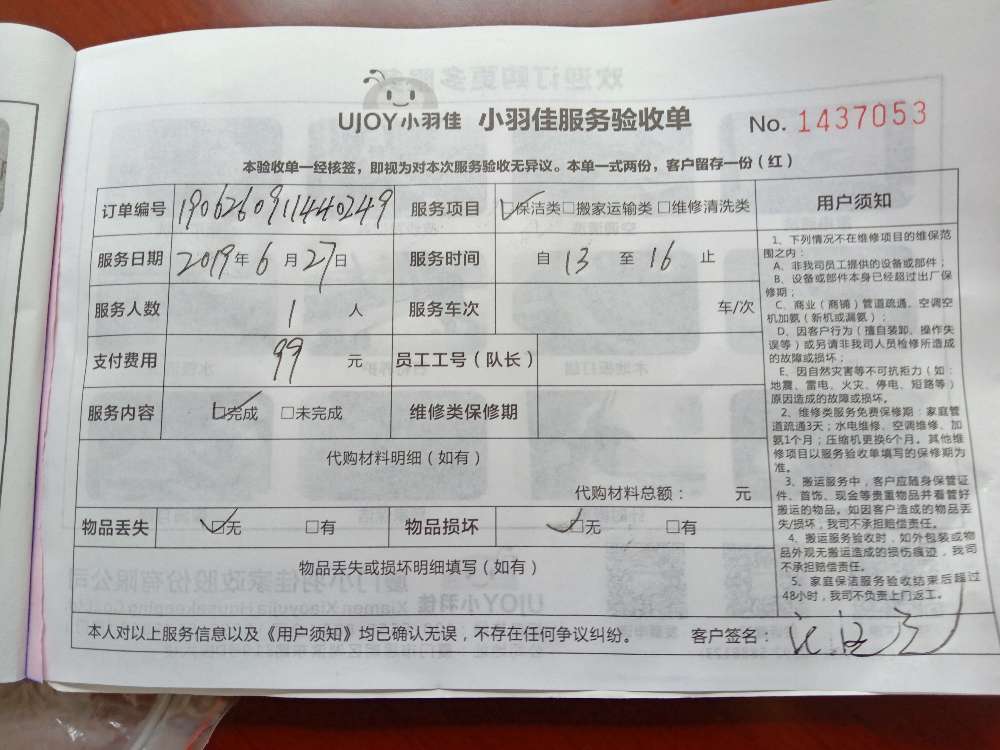 UJOY小羽佳 小羽佳服务验收单 No. 1437053
本验收单一经核签，即视为对本次服务验收无异议。本单一式两份，客户留存一份（红）
订单编号 1906260911440249 服务项目 ☑保洁类□搬家运输类□维修清洗类
服务日期 2019年6月27日 服务时间 自13至16止
服务人数 1人 服务车次 车/次
支付费用 99元 员工工号（队长）
服务内容 ☑完成 □未完成 维修类保修期
代购材料明细（如有）
代购材料总额： 元
物品丢失 ☑无 □有 物品损坏 ☑无 □有
物品丢失或损坏明细填写（如有）
用户须知
1、下列情况不在维修项目的维保范
围之内：
A、非我司员工提供的设备或部件；
B、设备或部件本身已经超过出厂保
修期；
C、商业（商铺）管道疏通、空调空
机加氨（新机或漏氨）；
D、因客户行为（擅自装卸、操作失
误等）或另请非我司人员检修所造成
的故障或损坏；
E、因自然灾害等不可抗拒力（如：
地震、雷电、火灾、停电、短路等）
原因造成的故障或损坏。
2、维修类服务免费保修期：家庭管
道疏通3天；水电维修、空调维修、加
氨1个月；压缩机更换6个月。其他维
修项目以服务验收单填写的保修期为
准。
3、搬运服务中，客户应随身保管证
件、首饰、现金等贵重物品并看管好
搬运的物品。如因客户造成的物品丢
失/损坏，我司不承担赔偿责任。
4、搬运服务验收时，如外包装或物
品外观无搬运造成的损伤痕迹，我司
不承担赔偿责任。
5、家庭保洁服务验收结束后超过
48小时，我司不负责上门返工。
本人对以上服务信息以及《用户须知》均已确认无误，不存在任何争议纠纷。 客户签名：